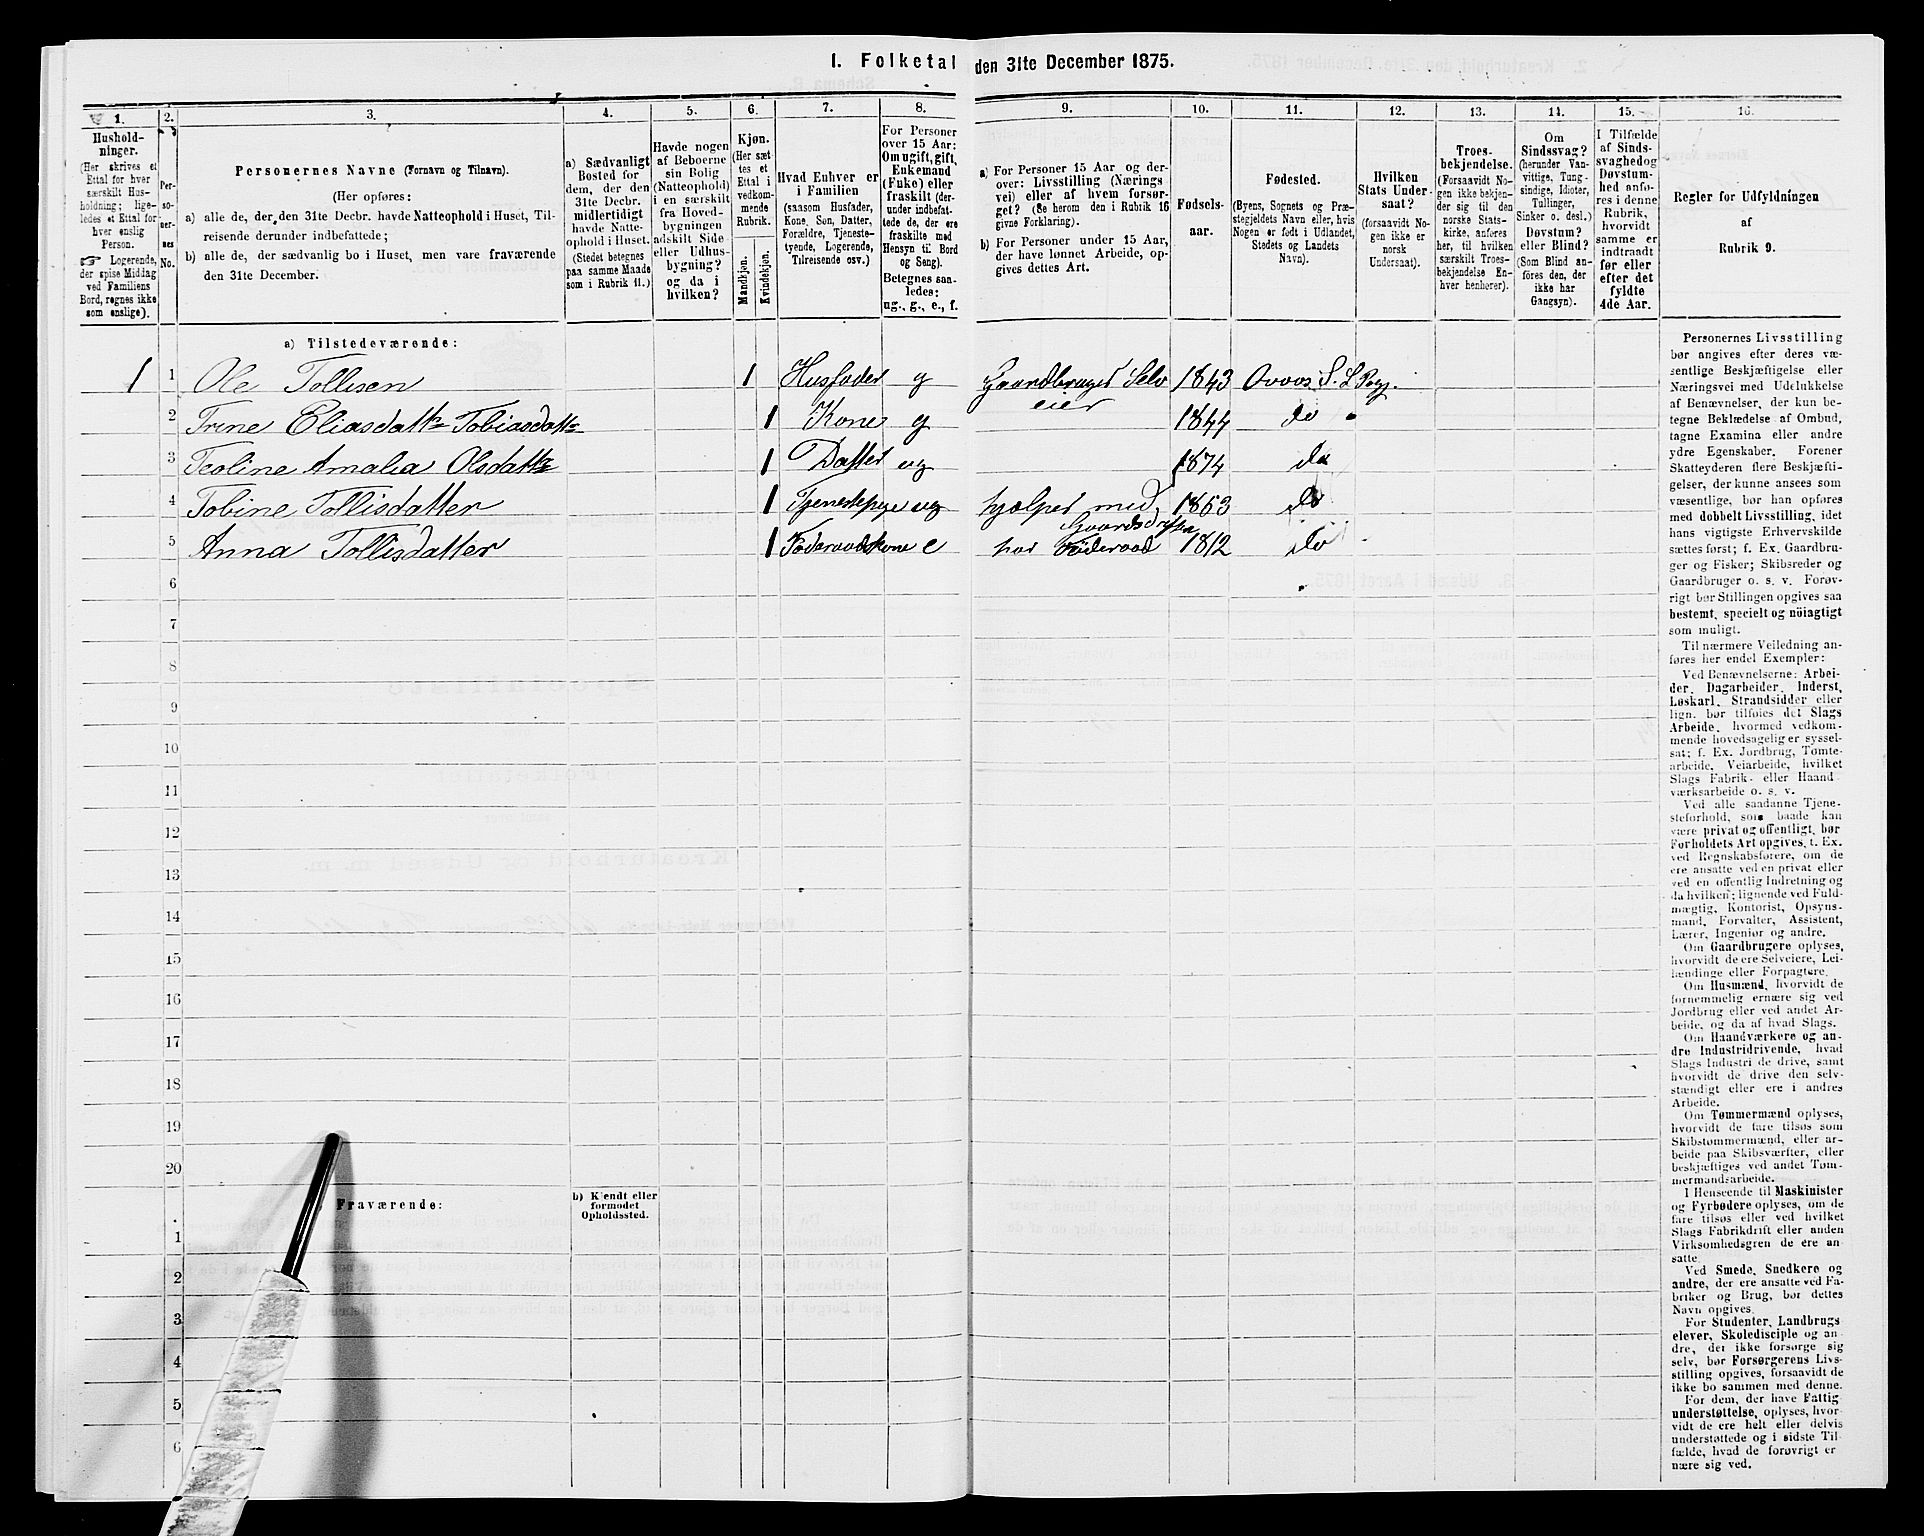 1. Folketal den 31te December 1875.
1.
2.
3.
4.
5.
6.
7.
8.
9.
10.
11.
12.
13.
14.
15.
16.
Hushold-
ninger.
(Her skrives et
Ettal for hver
særskilt Hus-
holdning; lige-
ledes et Ettal for
hver enslig
Person.
☞ Logerende,
der spise Middag
ved Familiens
Bord, regnes ikke
som enslige).
Per-
so-
ner-
nes
No.
Personernes Navne (Fornavn og Tilnavn).
(Her opføres:
a) alle de, der den 31te Decbr. havde Natteophold i Huset, Til-
reisende derunder indbefattede;
b) alle de, der sædvanlig bo i Huset, men vare fraværende
den 31te December.)
a) Sædvanligt
Bosted for
dem, der den
31te Decbr.
midlertidigt
havde Natte-
ophold i Huset.
(Stedet betegnes
paa samme Maade
som i Rubrik 11.)
Havde nogen
af Beboerne
sin Bolig
(Natteophold)
i en særskilt
fra Hoved-
bygningen
adskilt Side
eller Udhus-
bygning?
og da i
hvilken?
Kjøn.
(Her sæt-
tes et
Ettal i
vedkom-
mende
Rubrik.
Mandkjøn.
Kvindekjøn.
Hvad Enhver er
i Familien
(saasom Husfader,
Kone, Søn, Datter,
Forældre, Tjeneste-
tyende, Logerende,
Tilreisende osv.)
For Personer
over 15 Aar:
Om ugift, gift,
Enkemand
(Enke) eller
fraskilt (der-
under indbefat-
tede de, der ere
fraskilte med
Hensyn til Bord
og Seng).
Betegnes saa-
ledes:
ug., g., e., f.
a) For Personer 15 Aar og der-
over: Livsstilling (Nærings
vei) eller af hvem forsør-
get? (Se herom den i Rubrik 16
givne Forklaring).
b) For Personer under 15 Aar,
der have lønnet Arbeide, op-
gives dettes Art.
Fødsels-
aar.
Fødested.
(Byens, Sognets og Præ-
stegjeldets Navn eller, hvis
Nogen er født i Udlandet,
Stedets og Landets
Navn).
Hvilken
Stats Under-
saat?
(forsaavidt No-
gen ikke er
norsk
Undersaat).
Troes-
bekjendelse.
(Forsaavidt No-
gen ikke bekjen-
der sig til den
norske Stats-
kirke, anføres
her, til hvilken
særskilt Troes-
bekjendelse En-
hver henhører).
Om
Sindssvag?
(herunder Van-
vittige, Tung-
sindige, Idioter,
Tullinger,
Sinker o. desl.)
Døvstum?
eller Blind?
(Som Blind an-
føres den, der
ikke har
Gangsyn).
I Tilfælde
af Sinds-
svaghed og
Døvstum-
hed anfø-
res i denne
Rubrik,
hvorvidt
samme er
indtraadt
før eller
efter det
fyldte
4de Aar.
Regler for Udfyldningen
af
Rubrik 9.
a) Tilstedeværende:
1 1 Ole Tollisen 1 Husfader g Gaardbruger Selv 1843 Ovoos S. L Prgj.
eier
2 Trine Eliasdatt Tobiasdatt 1 Kone g 1844 do
3 Teoline Amalia Olsdatt 1 Datter ug 1874 do
4 Tobine Tollisdatter 1 Tjenestepige ug hjelper med 1853 do
Gaardsdriften
5 Anna Tollisdatter 1 Føderaadskone e har Føderaad 1812 do
6
7
8
9
10
11
12
13
14
15
16
17
18
19
20
Fraværende:
b) Kjendt eller
formodet
Opholdssted.
1
2
3
4
5
6
Personernes Livsstilling
bør angives efter deres væ-
sentlige Beskjæftigelse eller
Næringsvei med Udelukkelse
af Benævnelser, der kun be-
tegne Beklædelse af Ombud,
tagne Examina eller andre
ydre Egenskaber. Forener
Skatteyderen flere Beskjæfti-
gelser, der kunne ansees som
væsentlige, bør han opføres
med dobbelt Livsstilling, idet
hans vigtigste Erhvervskilde
sættes først; f. Ex. Gaardbru-
ger og Fisker; Skibsreder og
Gaardbruger o. s. v. Forøv-
rigt bør Stillingen opgives saa
bestemt, specielt og nöiagtigt
som muligt.
Til nærmere Veiledning an-
føres her endel Exempler:
Ved Benævnelserne: Arbei-
der, Dagarbeider, Inderst,
Løskarl, Strandsidder eller
lign. bør tilføies det Slags
Arbeide, hvormed vedkom-
mende hovedsagelig er syssel-
sat; f. Ex. Jordbrug, Tømte-
arbeide, Veiarbeide, hvilket
Slags Fabrik- eller Haand
værksarbeide o. s. v.
Ved alle saadanne Tjene-
steforhold, som baade kan
være privat og offentligt, bør
Forholdets Art opgives, t. Ex.
ved Regnskabsførere, om de
ere ansatte ved en privat eller
ved en offentlig Indretning og
da hvilken; lignende ved Fuld-
mægtig, Kontorist, Opsyns-
mand, Forvalter, Assistent,
Lærer, Ingeniør og andre.
Om Gaardbrugere oplyses,
hvorvidt de ere Selveiere, Lei-
lændinge eller Forpagtere.
Om Husmænd, hvorvidt de
fornemmelig ernære sig ved
Jordbrug eller ved andet Ar-
beide, og da af hvad Slags.
Om Haandværkere og an-
dre Industridrivende, hvad
Slags Industri de drive, samt
hvorvidt de drive den selv-
stændigt eller ere i andres
Arbeide.
Om Tømmermænd oplyses,
hvorvidt de fare tilsøs som
Skibstømmermænd, eller ar-
beide paa Skibsværfter, eller
beskjæftiges ved andet Tøm-
mermandsarbeide.
I Henseende til Maskinister
og Fyrbødere oplyses, om de
fare tilsøs eller ved hvilket
Slags Fabrikdrift eller anden
Virksomhedsgren de ere an-
satte.
Ved Smede, Snedkere og
andre, der ere ansatte ved Fa-
briker og Brug, bør dettes
Navn opgives.
For Studenter, Landbrugs
elever, Skoledisciple og an-
dre, der ikke forsørge sig
selv, bør Forsørgerens Livs-
stilling opgives, forsaavidt de
ikke bo sammen med denne.
For dem, der have Fattig
understøttelse, oplyses, hvor-
vidt de ere helt eller delvis
understøttede og i sidste Til-
fælde, hvad de forøvrigt er
nære sig ved.